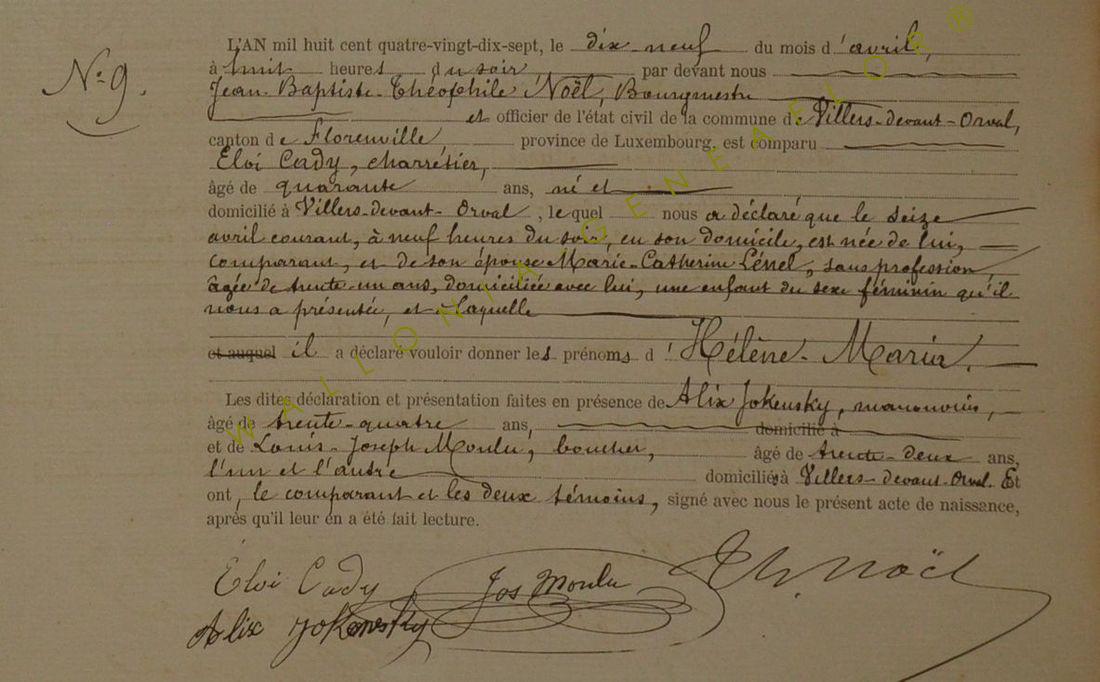 N° 9.
L'AN mil huit cent quatre-vingt-dix-sept, le dix-neuf du mois d'avril,
à huit heures du soir, par devant nous
Jean-Baptiste-Théophile Noël, Bourgmestre
et officier de l'état civil de la commune de Villers-devant-Orval,
canton de Florenville province de Luxembourg, est comparu
Eloi Cady, charretier,
âgé de quarante ans, né et
domicilié à Villers-devant-Orval, lequel nous a déclaré que le seize
avril courant, à neuf heures du soir, en son domicile, est née de lui,
comparant, et de son épouse Marie-Catherine Lénel, sans profession,
âgée de trente-un ans, domiciliée avec lui, une enfant du sexe féminin qu'il
nous a présentée, et à laquelle
et auquel il a déclaré vouloir donner les prénoms d'Hélène-Maria.
Les dites déclaration et présentation faites en présence de Alix Jokensky, manouvrier,
âgé de trente-quatre ans, domicilié à
et de Louis-Joseph Moulu, boucher, âgé de trente-deux ans,
l'un et l'autre domiciliés à Villers-devant-Orval. Et
ont, le comparant et les deux témoins, signé avec nous le présent acte de naissance,
après qu'il leur en a été fait lecture.
Eloi Cady Jos Moulu Th. Noël
Alix Jokensky
WALLONIA GENEALOR®